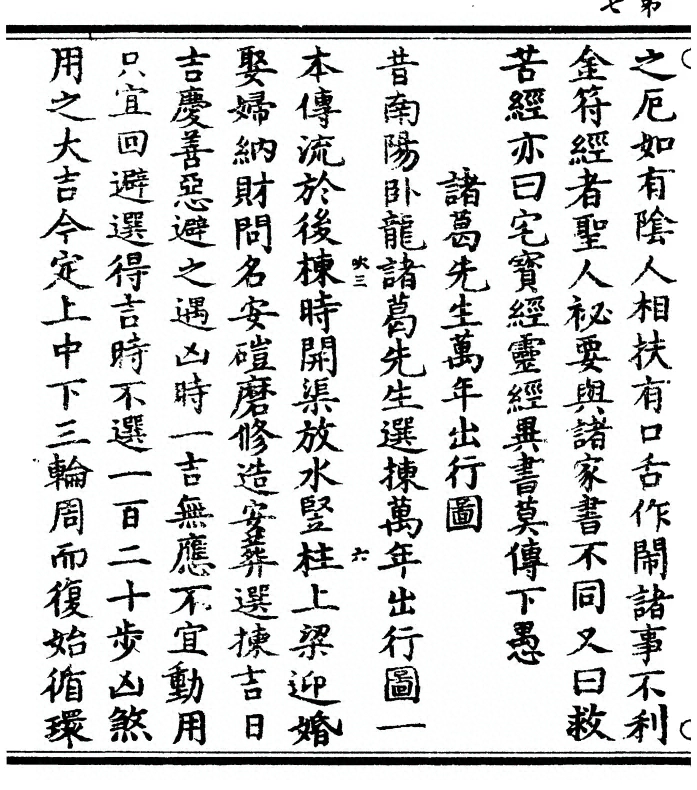 之厄如有陰人相扶有口舌作鬧諸事不利
金符經者聖人祕要與諸家書不同又曰救
苦經亦曰宅寶經靈經異書莫傳下愚
諸葛先生萬年出行圖
昔南陽卧龍諸葛先生選揀萬年出行圖一
本傳流於後棟時開渠放水竪柱上梁迎婚
娶婦納財問名安磑磨修造安葬選揀吉日
吉慶善惡避之遇凶時一吉無應不宜動用
只宜回避選得吉時不選一百二十步凶煞
用之大吉今定上中下三輪周而復始循環